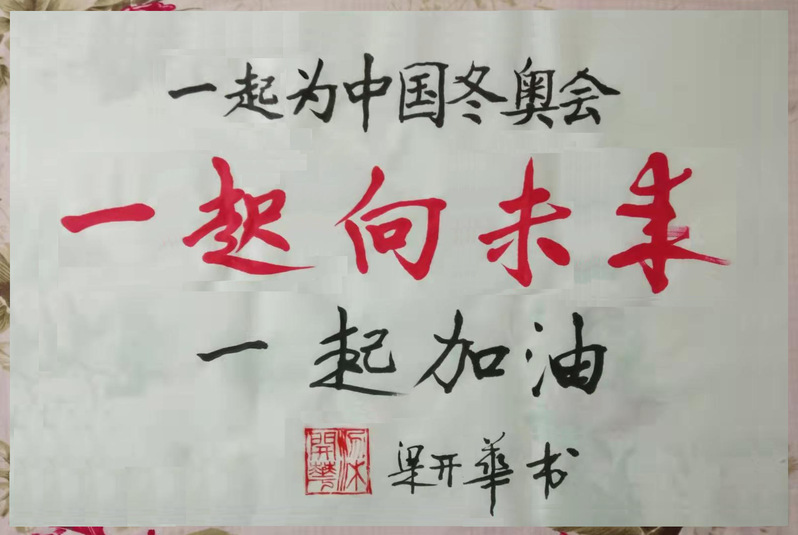 一起为中国冬奥会
一起向未来
一起加油
梁開華
梁开華书